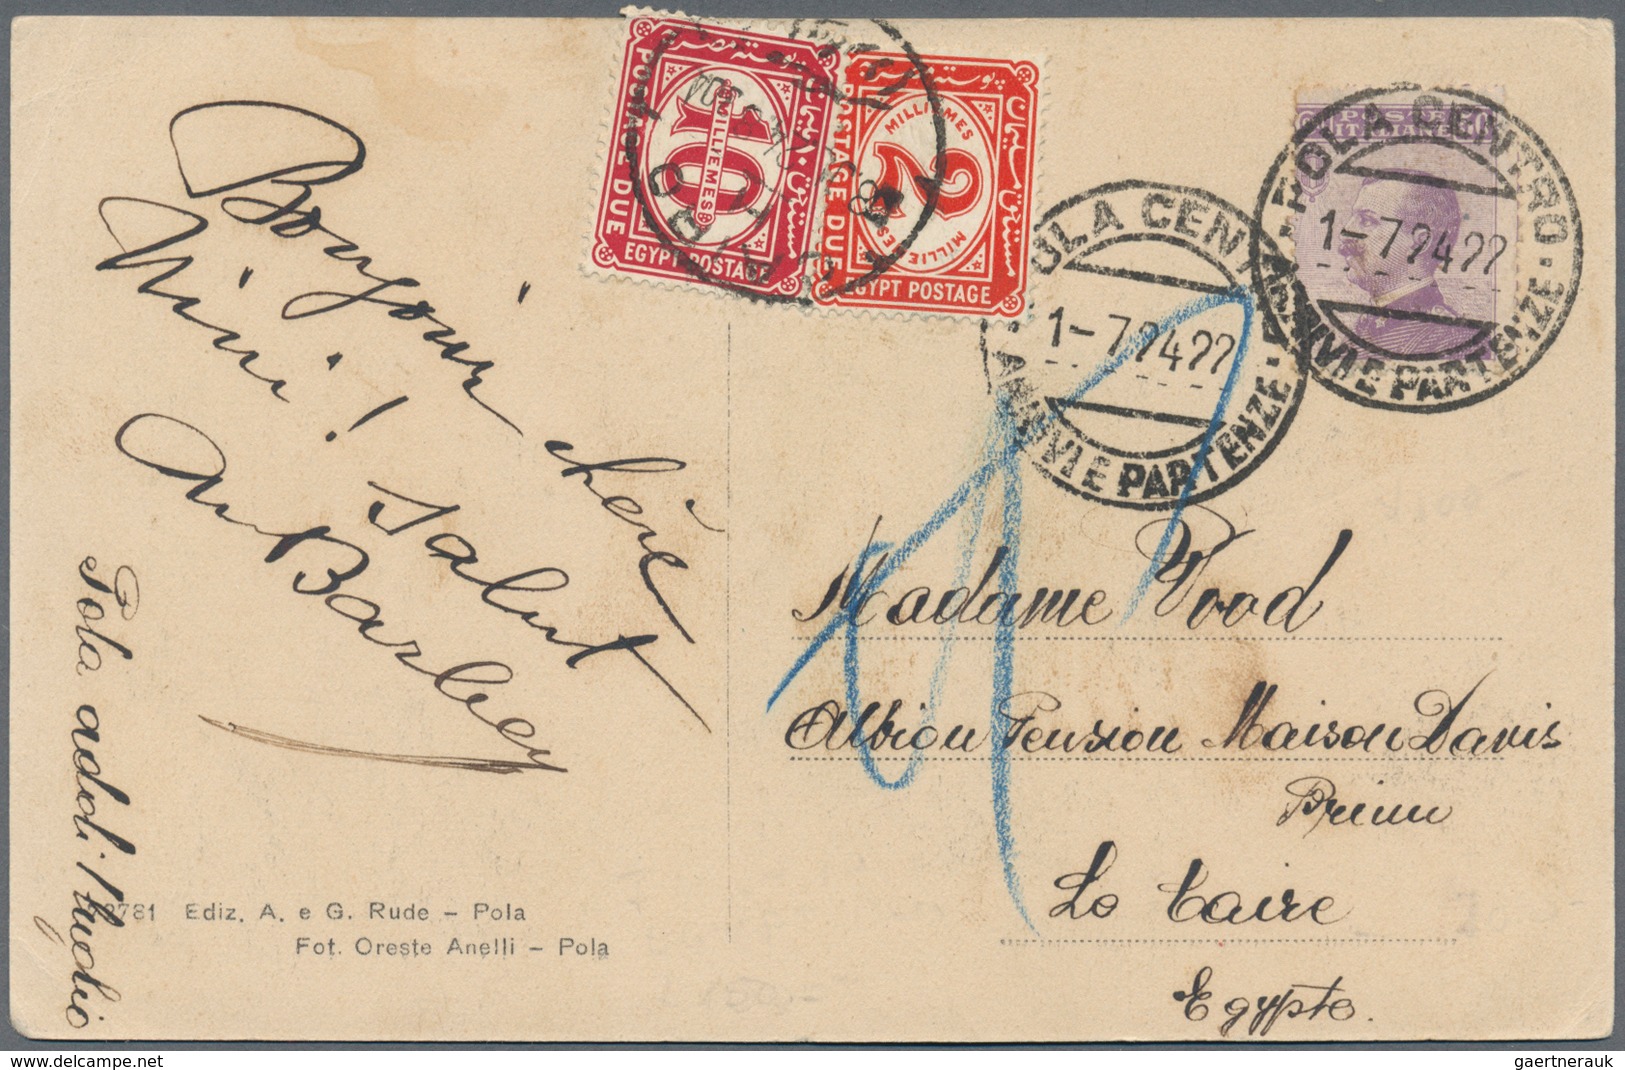 Bonjour chère
Nini! Salut
Barbey
Pola addi 1 luglio
2781 Ediz. A. e G. Rude – Pola
Fot. Oreste Anelli – Pola
بوستة مصرية
POSTAGE DUE
10
MILLIEMES
EGYPT POSTAGE
بوستة مصرية
POSTAGE DUE
MILLIEMES
2
MILLIEMES
EGYPT POSTAGE
CAIRO
POLA CENTRO
1-7 24 22
ARRIVI E PARTENZE
POSTE ITALIANE
POLA CENTRO
1-7 24 22
ARRIVI E PARTENZE
Madame Wood
Albion Pension Maison Davis
Le Caire
Egypte.
delcampe.net
gaertnerauk